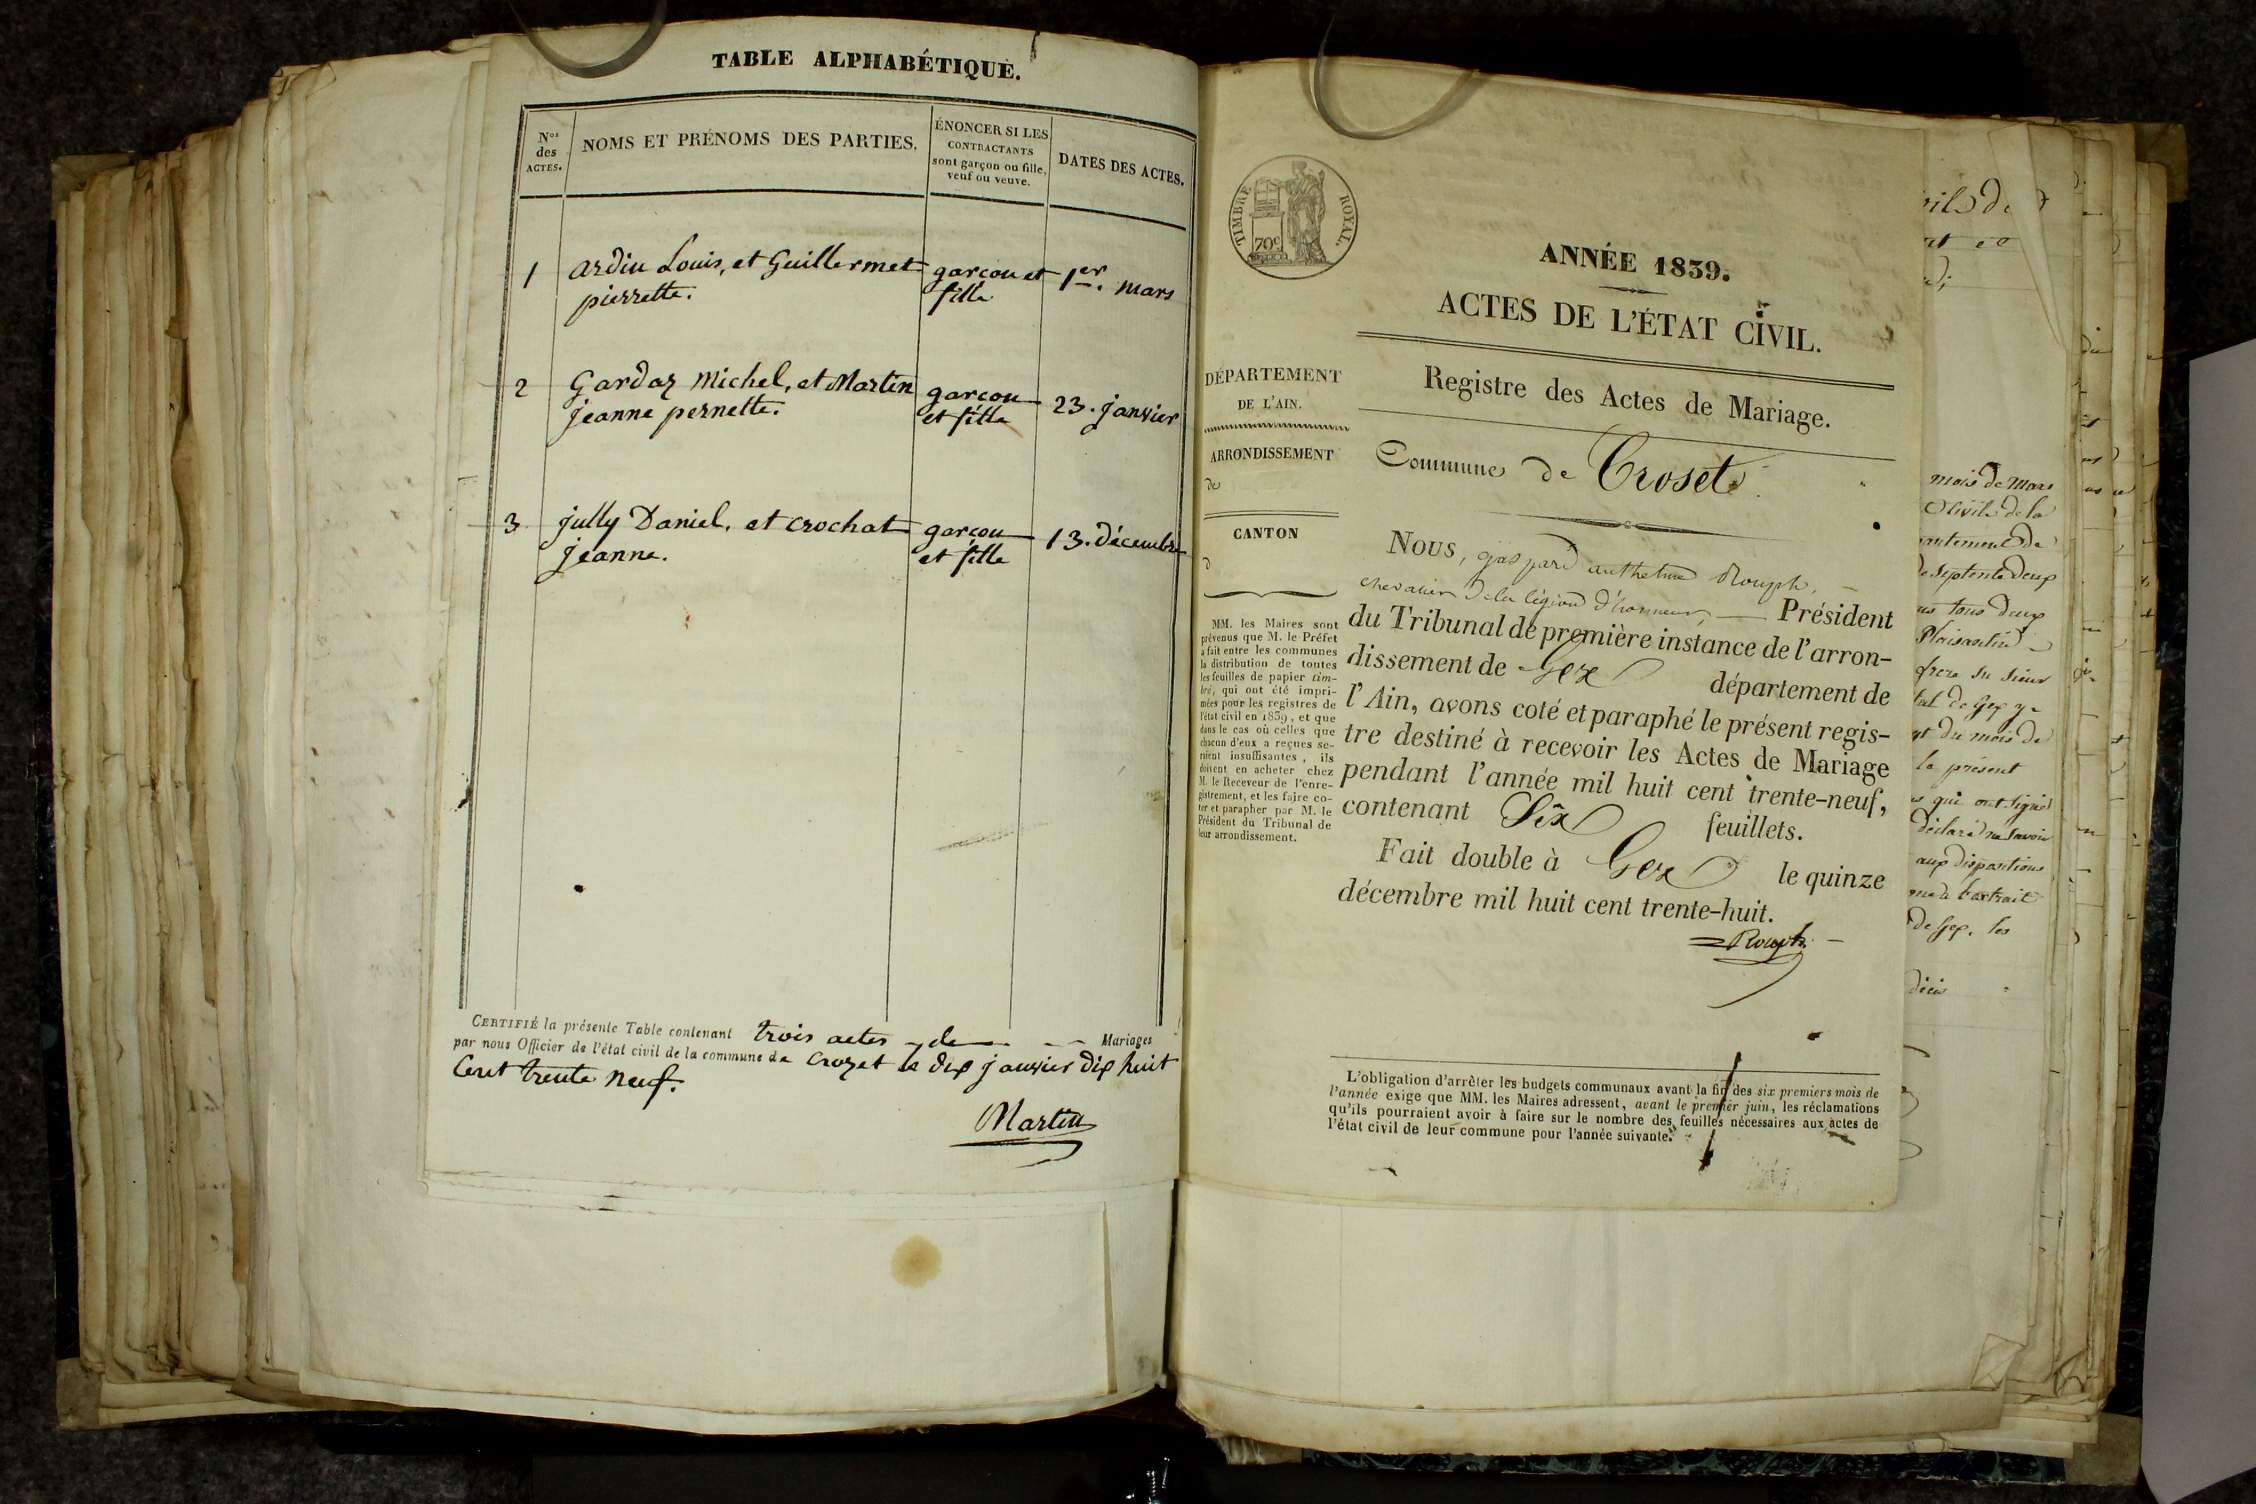 TABLE ALPHABÉTIQUE.
Nos des ACTES.
NOMS ET PRÉNOMS DES PARTIES.
ÉNONCER SI LES
CONTRACTANTS
sont garçon ou fille,
veuf ou veuve.
DATES DES ACTES.
1 ardin Louis, et Guillermet garçon et 1er. mars
pierrette. fille
2 Gardaz Michel, et Martin garçon 23. janvier
jeanne pernette. et fille
3 jully Daniel, et crochat garçon 13. décembre
jeanne. et fille
CERTIFIÉ la présente Table contenant trois actes de Mariages
par nous Officier de l'état civil de la commune de Crozet le dix janvier dix huit
Cent trente neuf.
Martin
TIMBRE ROYAL.
70c
ANNÉE 1839.
ACTES DE L'ÉTAT CIVIL.
DÉPARTEMENT
DE L'AIN.
ARRONDISSEMENT
de
CANTON
d
MM. les Maires sont
prévenus que M. le Préfet
a fait entre les communes
la distribution de toutes
les feuilles de papier tim-
bré, qui ont été impri-
mées pour les registres de
l'état civil en 1839, et que
dans le cas où celles que
chacun d'eux a reçues se-
raient insuffisantes, ils
doivent en acheter chez
M. le Receveur de l'enre-
gistrement, et les faire co-
ter et parapher par M. le
Président du Tribunal de
leur arrondissement.
Registre des Actes de Mariage.
Commune de Croset
Nous, gaspard anthelme Rouph,
chevalier de la légion d'honneur, Président
du Tribunal de première instance de l'arron-
dissement de Gex département de
l'Ain, avons coté et paraphé le présent regis-
tre destiné à recevoir les Actes de Mariage
pendant l'année mil huit cent trente-neuf,
contenant Six feuillets.
Fait double à Gex le quinze
décembre mil huit cent trente-huit.
Rouph
L'obligation d'arrêter les budgets communaux avant la fin des six premiers mois de
l'année exige que MM. les Maires adressent, avant le premier juin, les réclamations
qu'ils pourraient avoir à faire sur le nombre des feuilles nécessaires aux actes de
l'état civil de leur commune pour l'année suivante.
mois de Mars
Civile de la
de Septente deux
tous deux
frere du sieur
de Gex
du mois de
le présent
qui ont signé
déclaré ne savoir
aux dispositions
de Gex. les